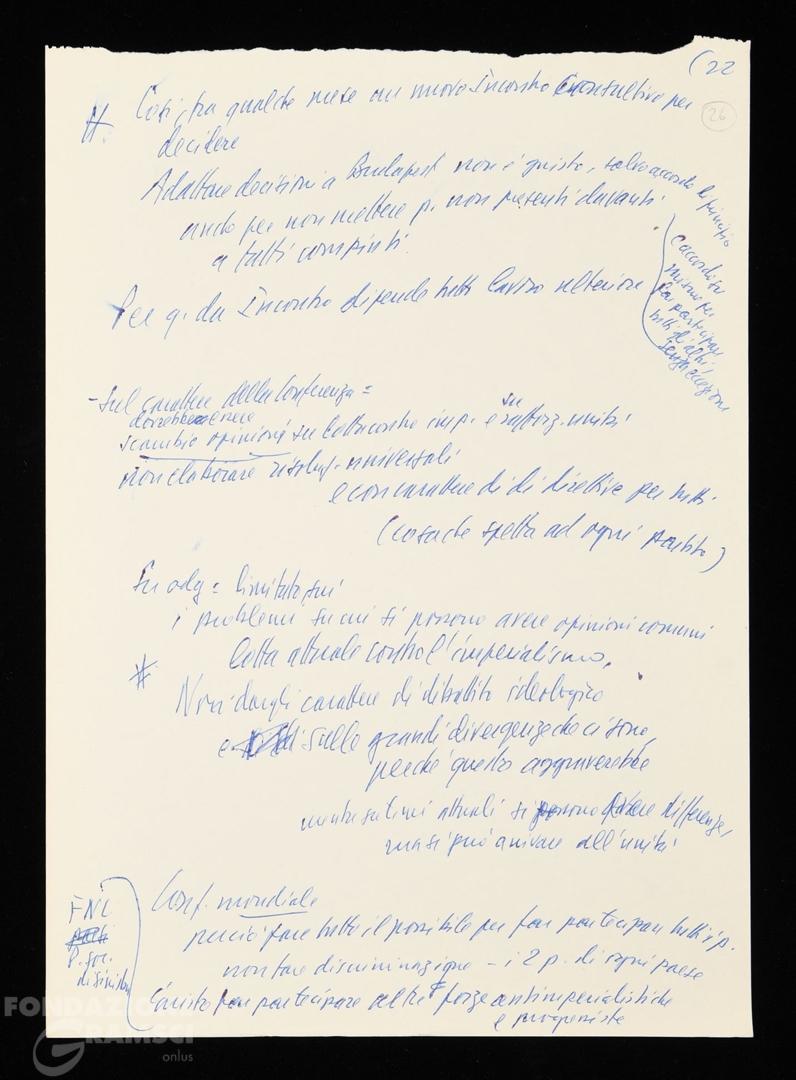 (22
26
#. Così, tra qualche mese un nuovo Incontro Consultivo per
decidere
Adottare decisioni a Budapest non è giusto, salvo accordo di principio
anche per non mettere p. non presenti davanti
a fatti compiuti.
Per q. da Incontro dipende tutto lavoro ulteriore
e accordi su
misure per
far partecipare
tutti gli altri
senza eccezioni
- Sul carattere della Conferenza =
dovrebbe essere
scambio opinioni su lotta contro imp. e su rafforz. unità
non elaborare risoluz. universali
e con carattere di di direttive per tutti
(cosa che spetta ad ogni partito)
Su odg = limitato, sui
i problemi su cui si possono avere opinioni comuni
lotta attuale contro l'imperialismo,
# Non dargli carattere di dibattito ideologico
e sulle grandi divergenze che ci sono,
perché questo aggraverebbe
mentre su temi attuali si possono avere differenze,
ma si può arrivare all'unità
Conf. mondiale
perciò fare tutto il possibile per far partecipare tutti i p.
non fare discriminazione - i 2 p. di ogni paese
Giusto far partecipare altre forze antimperialistiche
e progressiste
FNL
P. soc.
di sinistra
FONDAZIONE
GRAMSCI
onlus